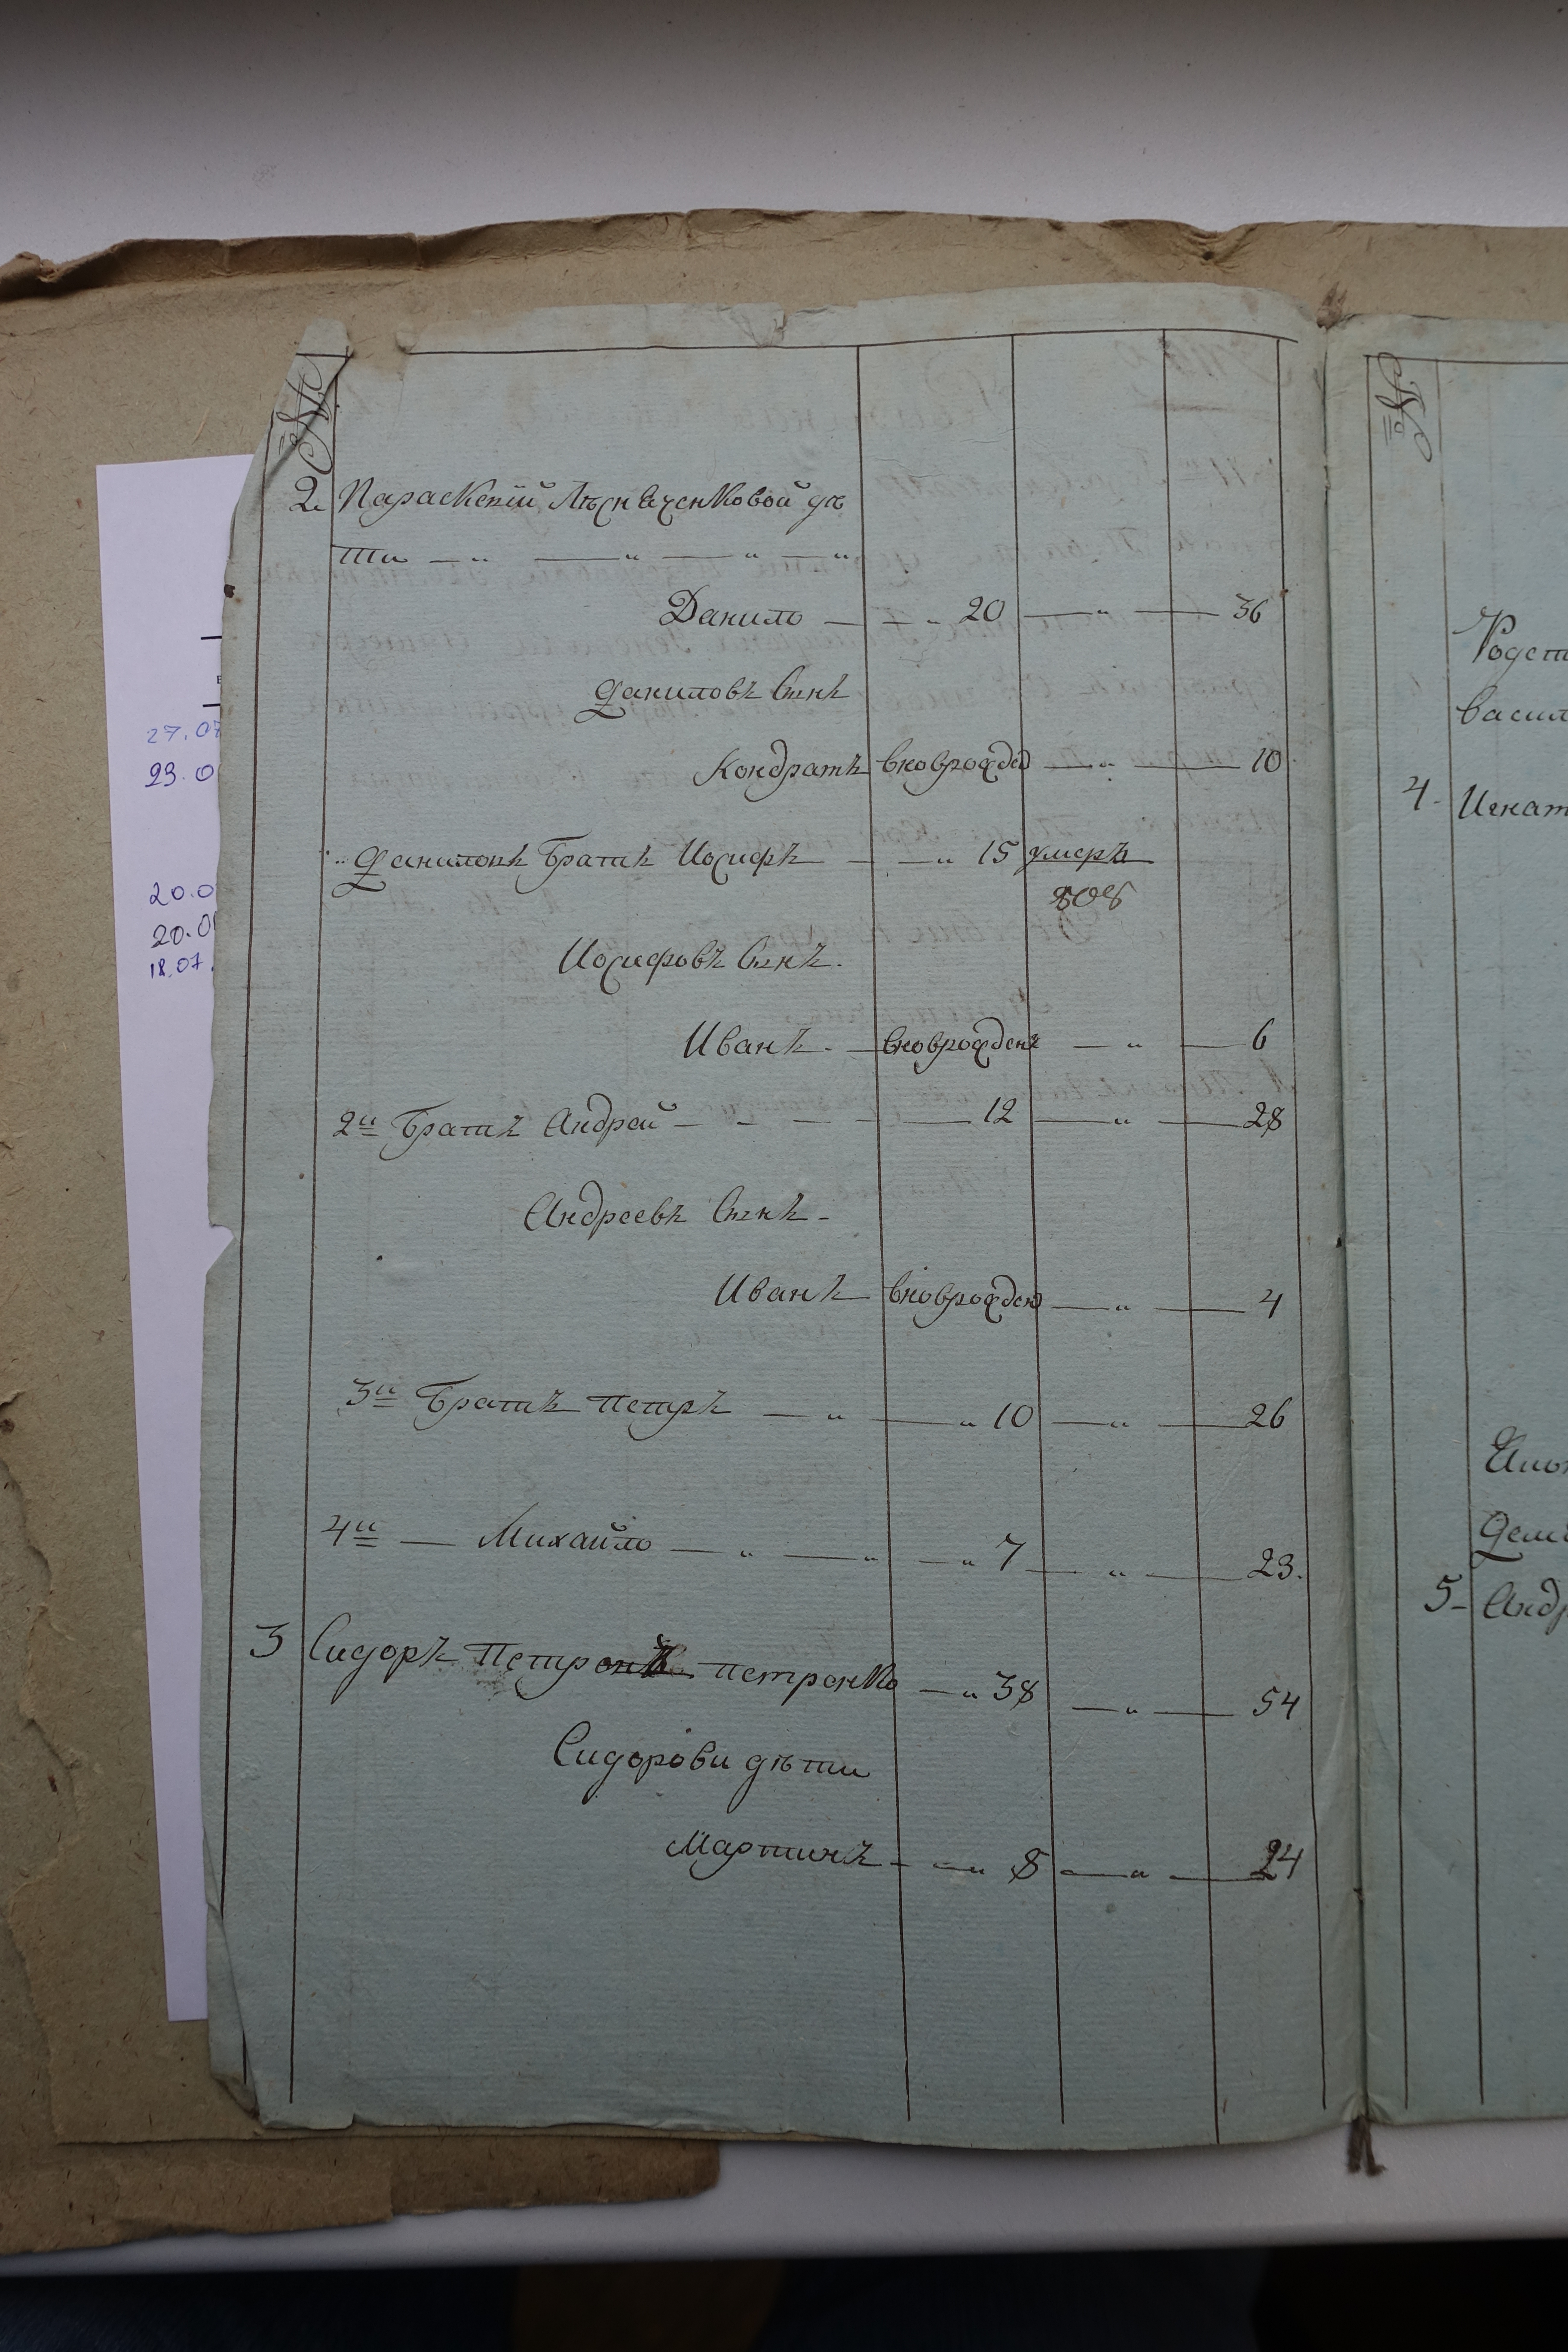 №
2. Параскевiй Лѣсняченковой дѣ
ти — „ — „ — „ — „
Данило — — „ 20 — „ — 36
Даниловъ Сынъ
Кондратъ вноврожде — „ — 10
Даниловъ Братъ Иосифъ — — „ 15 умеръ
808
Иосифовъ Сынъ.
Иванъ — вноврожденъ — „ — 6
2й Братъ Андрей — — — — 12 — „ — 28
Андреевъ Сынъ —
Иванъ — вноврожден — „ — 4
3й Братъ Петръ — „ — „ 10 — „ — 26
4й — Михайло — „ — „ — „ 7 — „ — 23.
3 Сидоръ Петренко — „ 38 — „ — 54
Сидорови дѣти
Мартинъ — — „ 8 — „ — 24
№
Родст
васил
4. Игнат
Дем
5— Андр
27.07
23.0
20.0
20.0
18.07.